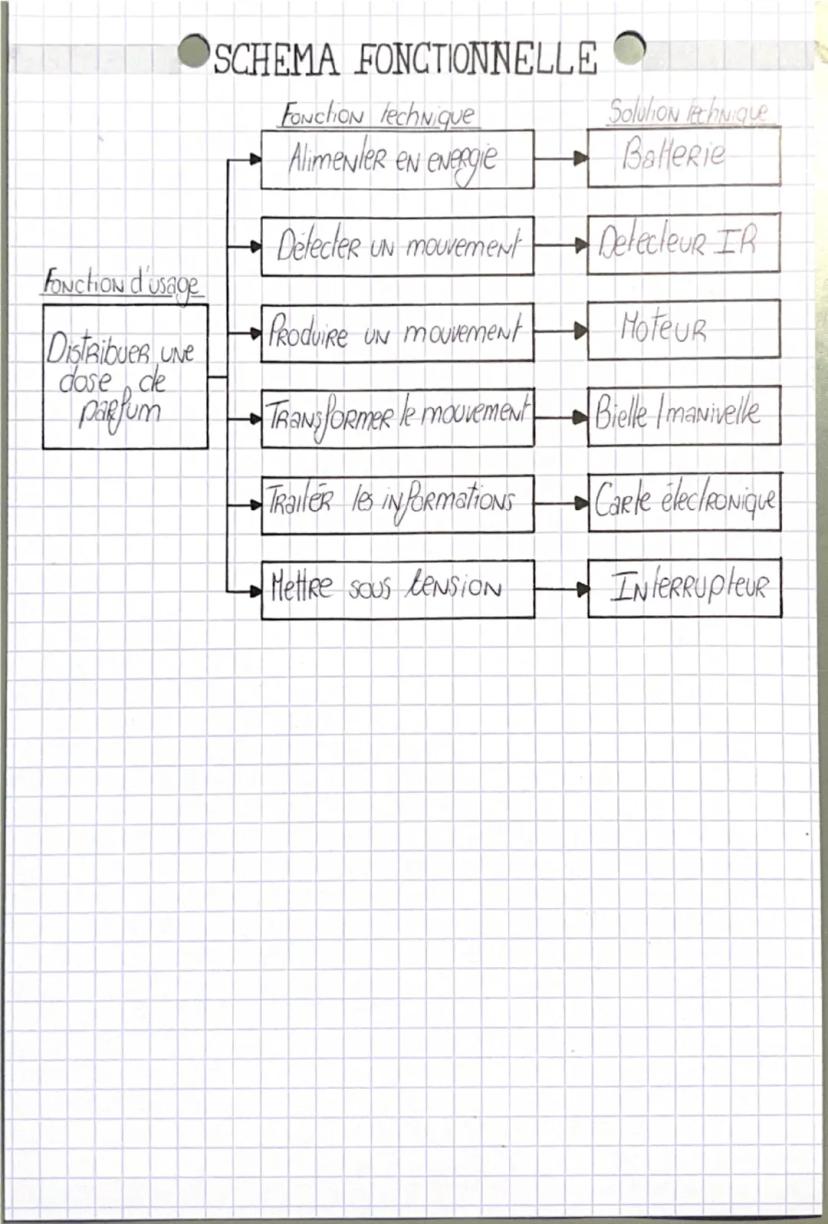 SCHEMA FONCTIONNELLE
Fonction technique
Solution technique
Alimenter en energie
Batterie
Détecter un mouvement
Detecteur IR
Fonction d'usage
Distribuer une
dose de
parfum
Produire un mouvement
Moteur
Transformer le mouvement
Bielle / manivelle
Traiter les informations
Carte électronique
Mettre sous tension
Interrupteur